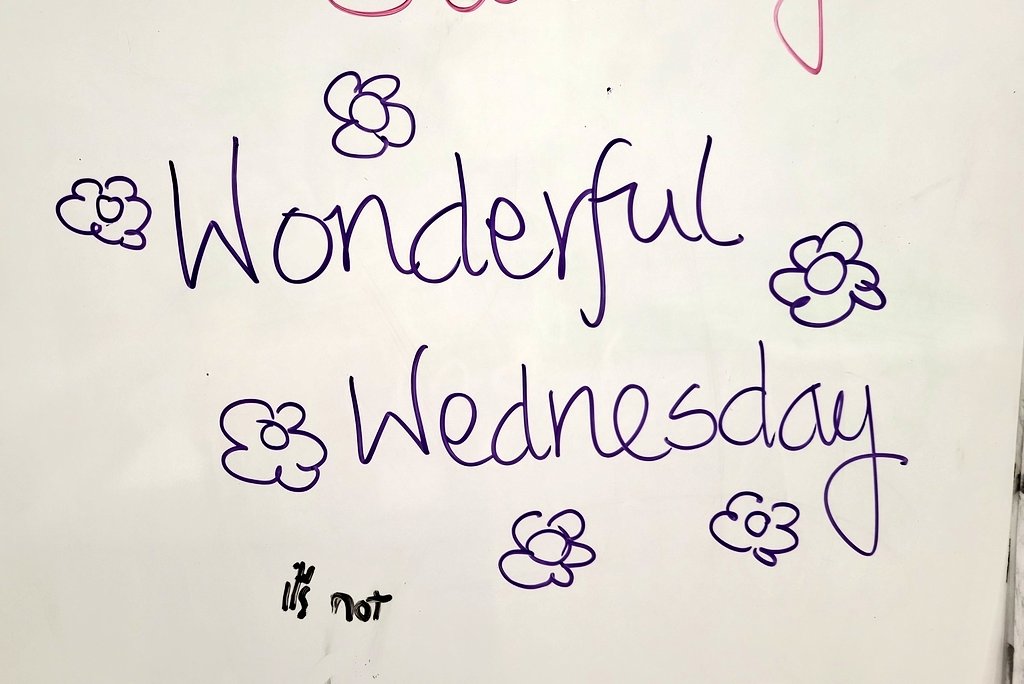 Wonderful
Wednesday
it's not